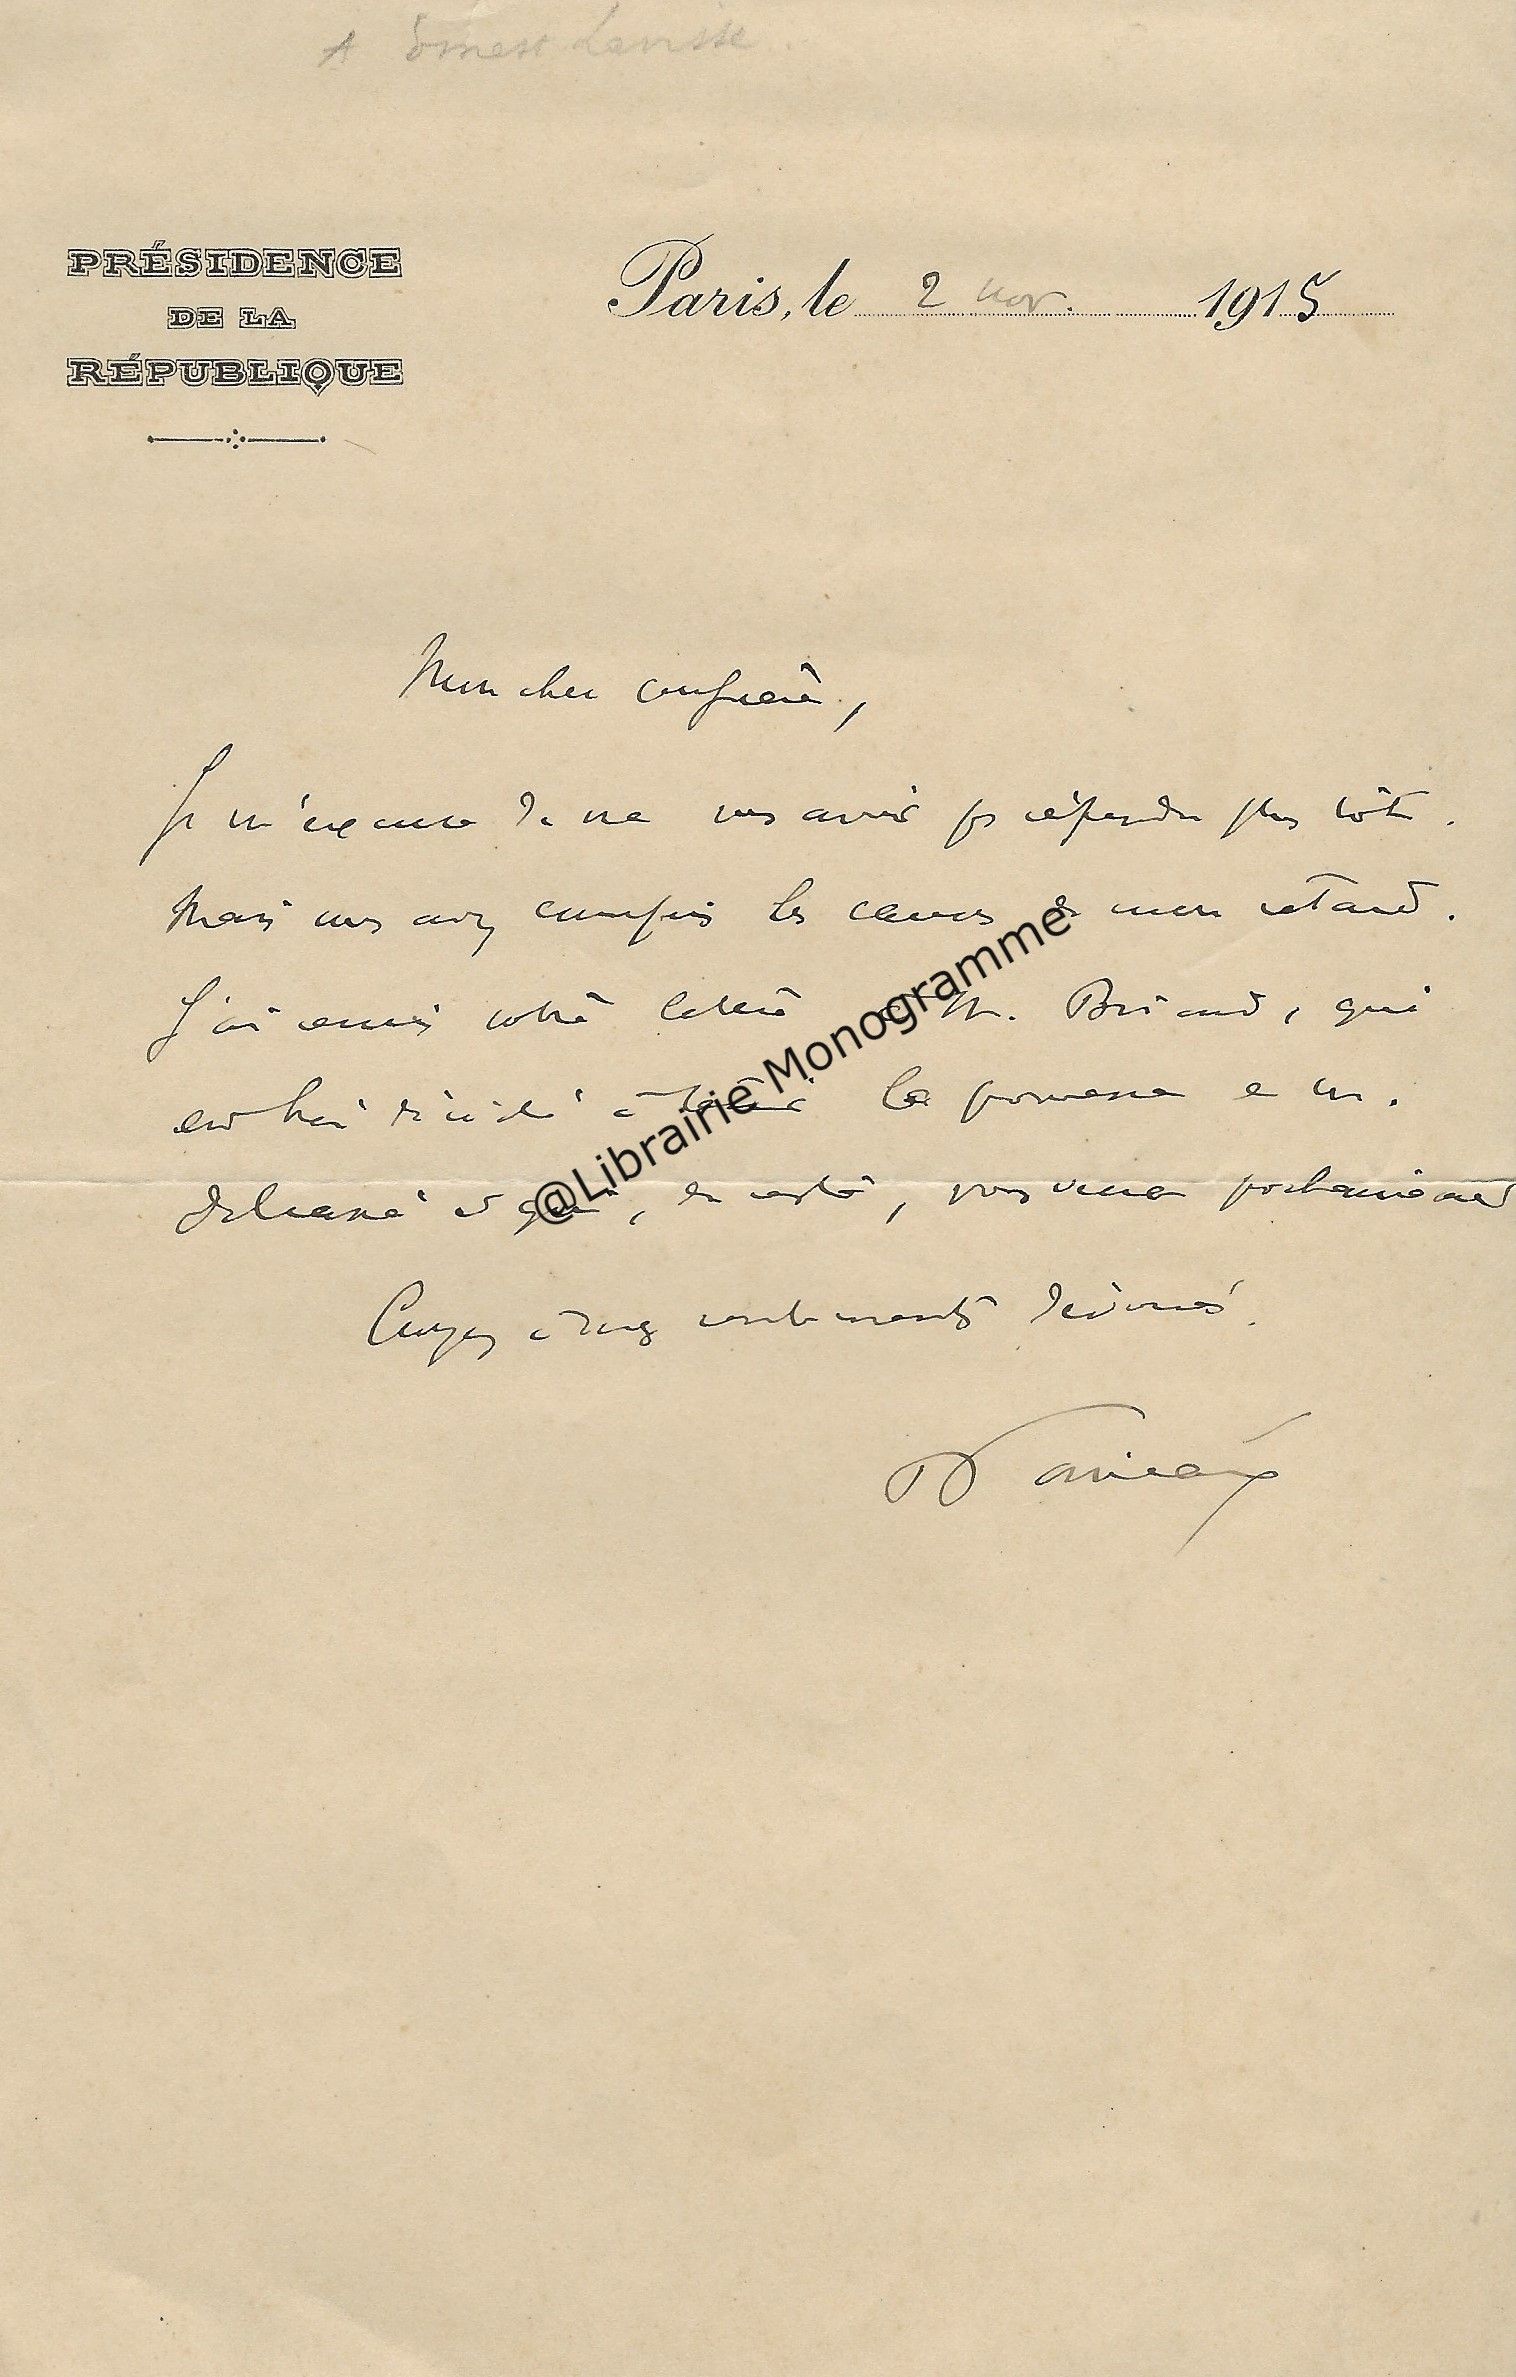 A Ernest Lavisse.
PRÉSIDENCE
DE LA
RÉPUBLIQUE
Paris, le 2 nov. 1915
Mon cher confrère,
Je m'excuse de ne vous avoir pas répondu plus tôt.
Mais vous avez compris les causes de mon retard.
J'ai remis votre lettre à M. Briand, qui
est très décidé à tenir la promesse de M.
Delcassé et qui, du reste, vous verra prochainement
Croyez à mes sentiments dévoués.
Poincaré
@Librairie Monogramme